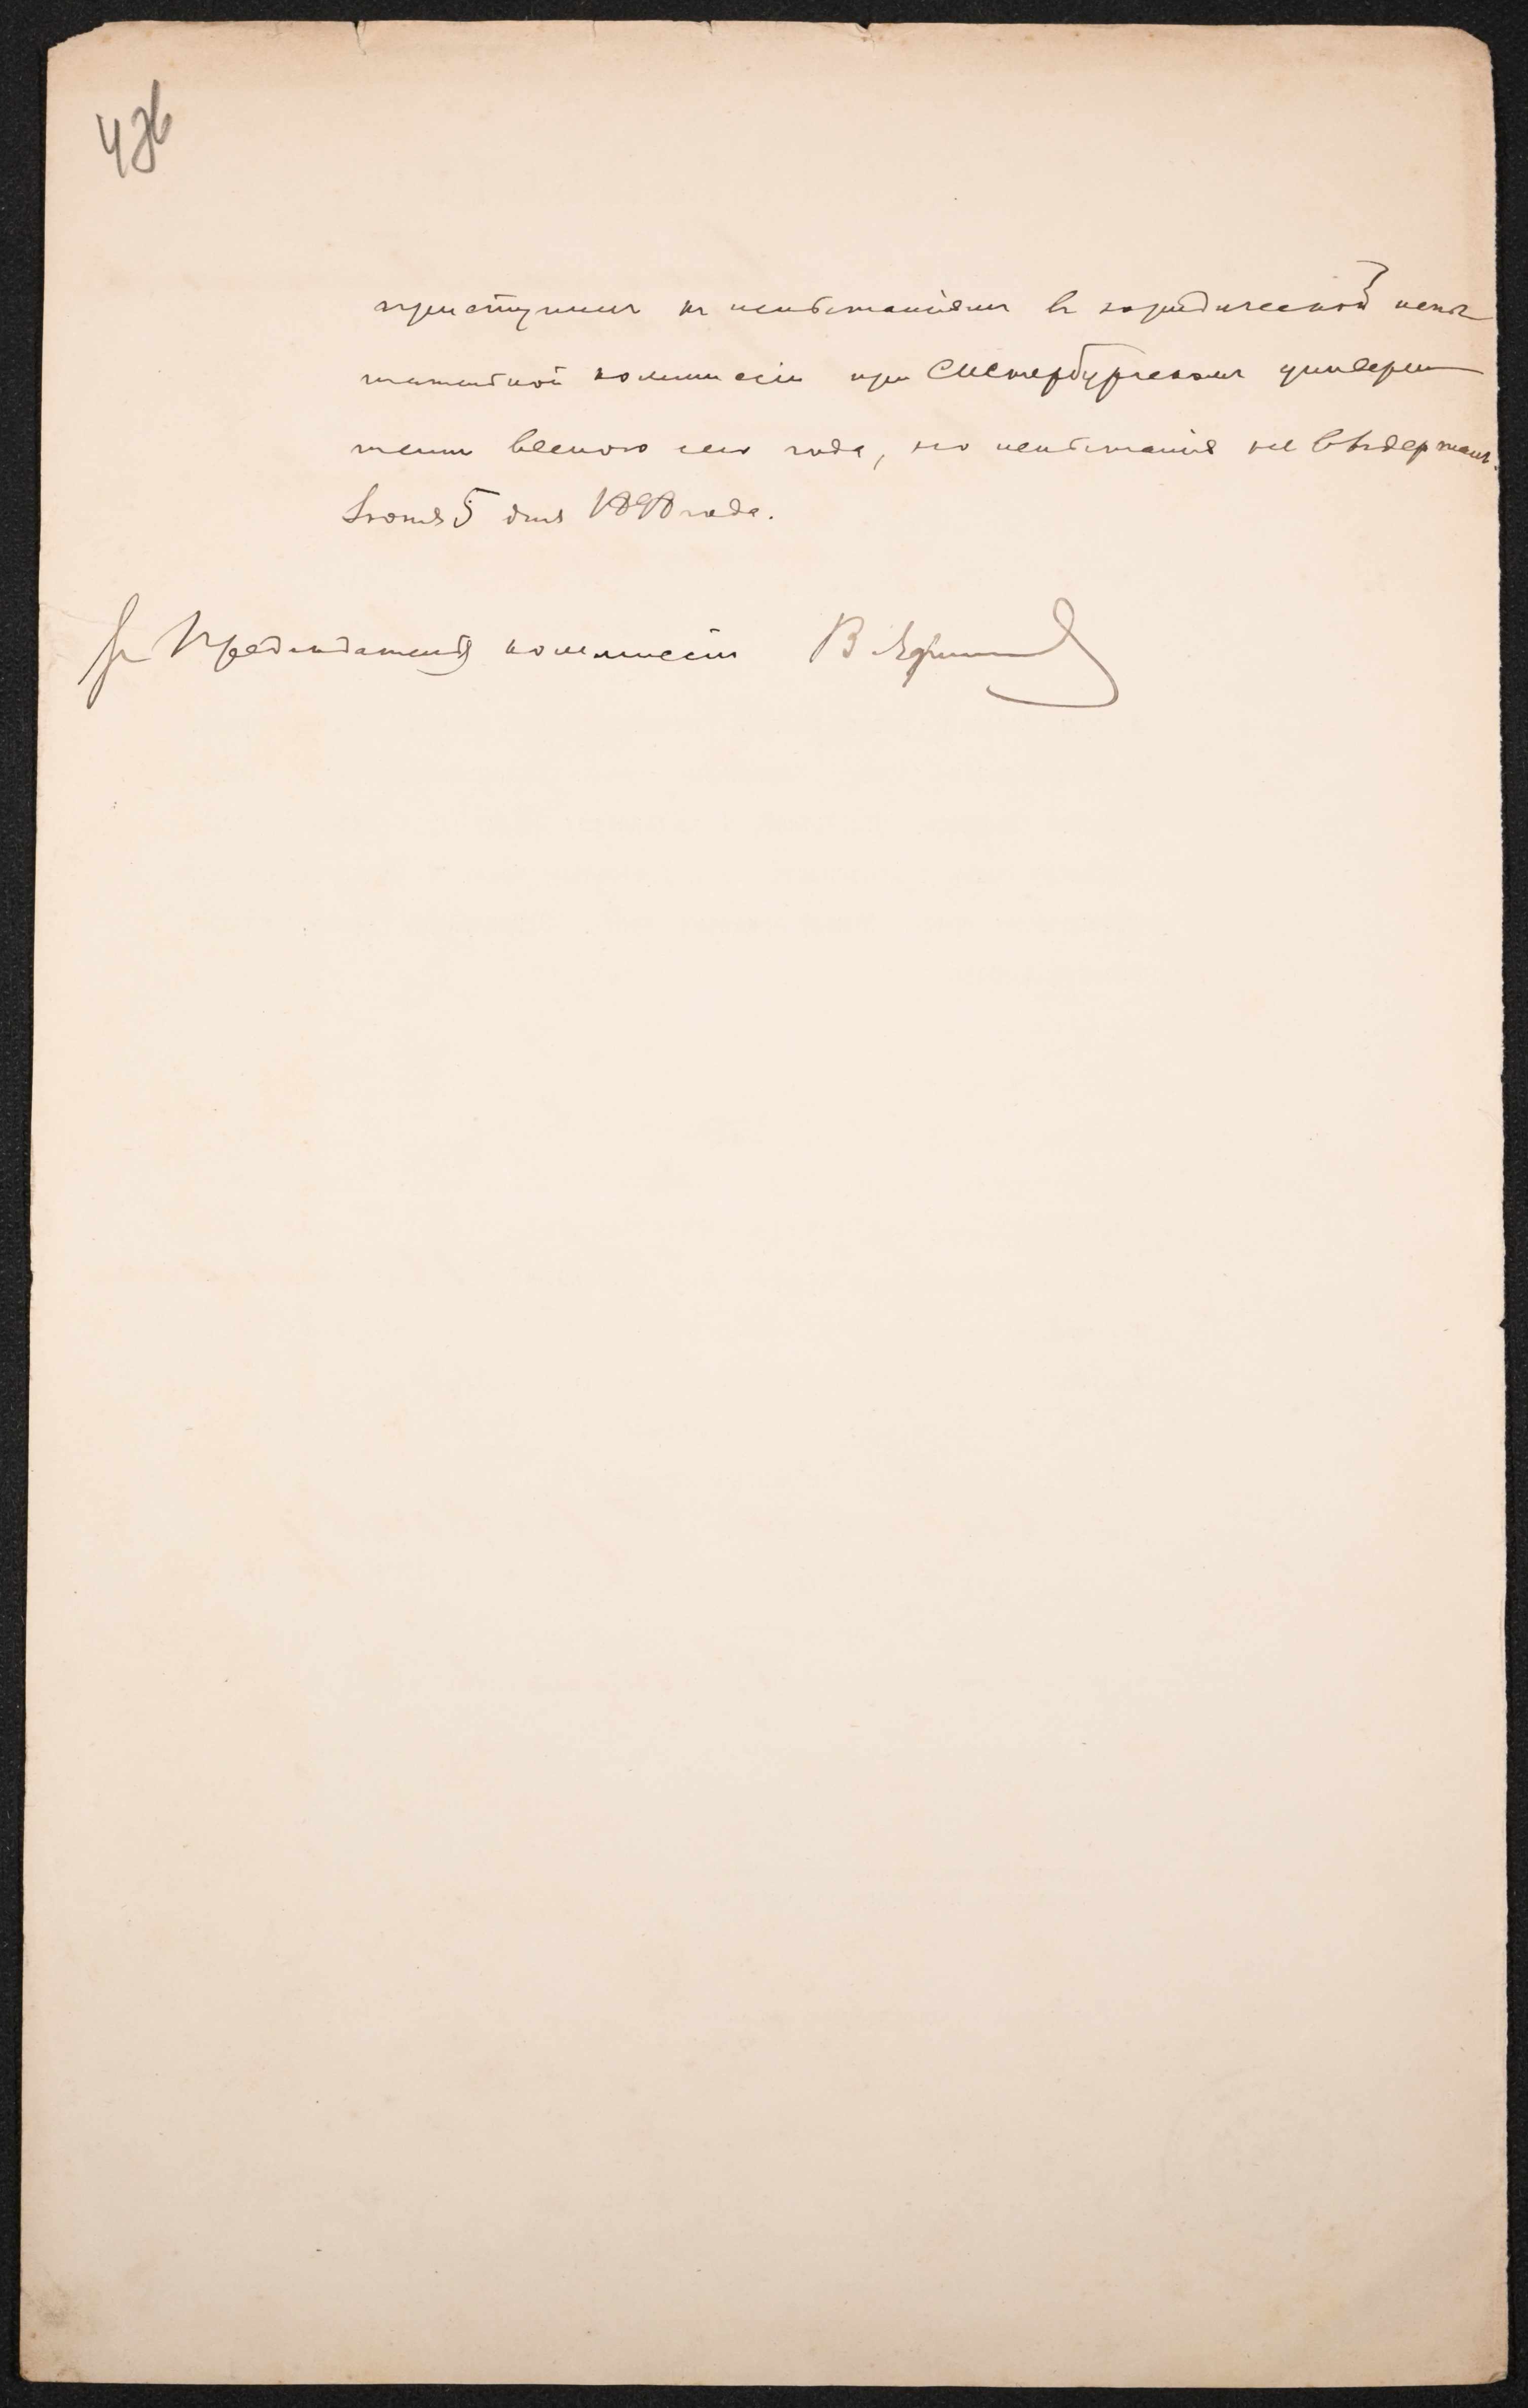 42б
приступилъ къ испытаніямъ въ юридической испы
тательной коммиссіи при С.Петербургскомъ универси
тетѣ весною сего года, но испытанія не выдержалъ.
Іюня 5 дня 1898 года.
За Предсѣдателя коммиссіи В